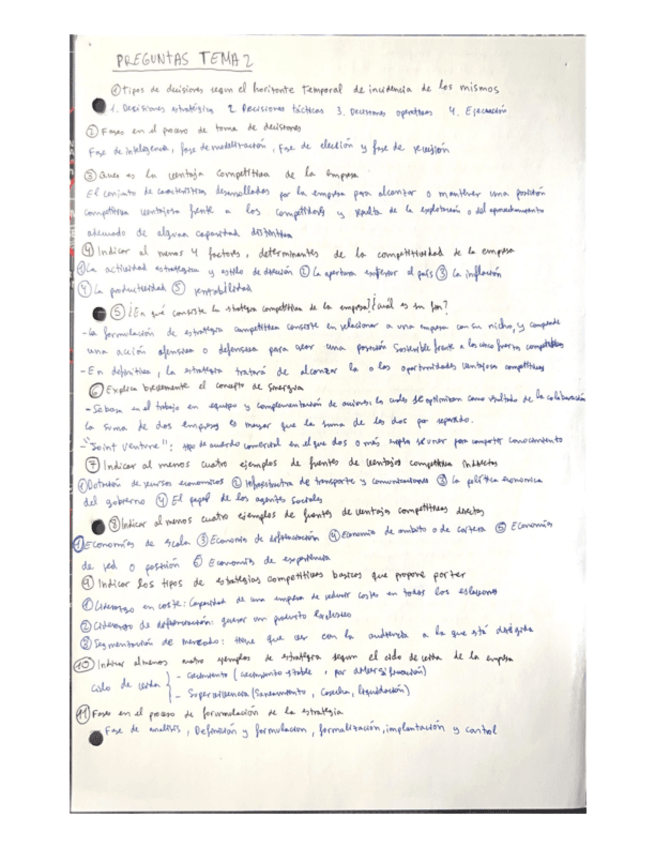 PREGUNTAS TEMA 2
① tipos de decisiones segun el horizonte temporal de incidencia de los mismos
1. Decisiones estratégicas 2. Decisiones tácticas 3. Decisiones operativas 4. Ejecución
② Fases en el proceso de toma de decisiones
Fase de inteligencia, fase de modelización, Fase de elección y fase de revisión
③ Que es la ventaja competitiva de la empresa
El conjunto de características desarrolladas por la empresa para alcanzar o mantener una posición
competitiva ventajosa frente a los competidores y resulta de la explotación o del aprovechamiento
adecuado de alguna capacidad distintiva
④ Indicar al menos 4 factores, determinantes de la competitividad de la empresa
① La actividad estratégica y estilo de dirección ② La apertura exterior el país ③ La inflación
④ La productividad ⑤ rentabilidad
⑤ ¿En qué consiste la strategia competitiva de la empresa? ¿Cuál es su fin?
- La formulación de estrategia competitiva consiste en relacionar a una empresa con su nicho, y comprende
una acción ofensiva o defensiva para crear una posición sostenible frente a las cinco fuerzas competitivas
- En definitiva, la estrategia tratará de alcanzar la o las oportunidades ventajosas competitivas
⑥ Explica brevemente el concepto de sinergia
- Se basa en el trabajo en equipo y complementación de acciones, las cuales se optimizan como resultado de la colaboración
la suma de dos empresas es mayor que la suma de las dos por separado.
- "Joint venture": tipo de acuerdo comercial en el que dos o más se unen para compartir conocimiento
⑦ Indicar al menos cuatro ejemplos de fuentes de ventajas competitiva indirectas
① Dotación de recursos económicos ② Infraestructura de transporte y comunicaciones ③ La política económica
del gobierno ④ El papel de los agentes sociales
⑧ Indicar al menos cuatro ejemplos de fuentes de ventajas competitivas directas
① Economías de escala ③ Economía de ④ Economía de ambito o de cartera ⑤ Economías
de red o posición ⑥ Economías de experiencia
⑨ Indicar los tipos de estrategias competitivas basicas que propone porter
① Liderazgo en coste: Capacidad de una empresa de reducir costes en todos los eslabones
② Liderazgo de diferenciación: querer un producto
③ Segmentación de mercado: tiene que ver con la audiencia a la que está dirigida
⑩ Indicar al menos cuatro ejemplos de estrategia segun el ciclo de vida de la empresa
Ciclo de vida - Crecimiento (crecimiento estable, por diversificación)
- Supervivencia (Saneamiento, Cosecha, liquidación)
⑪ Fases en el proceso de formulación de la estrategia
- Fase de análisis, Definición y formulación, formalización, implantación y control